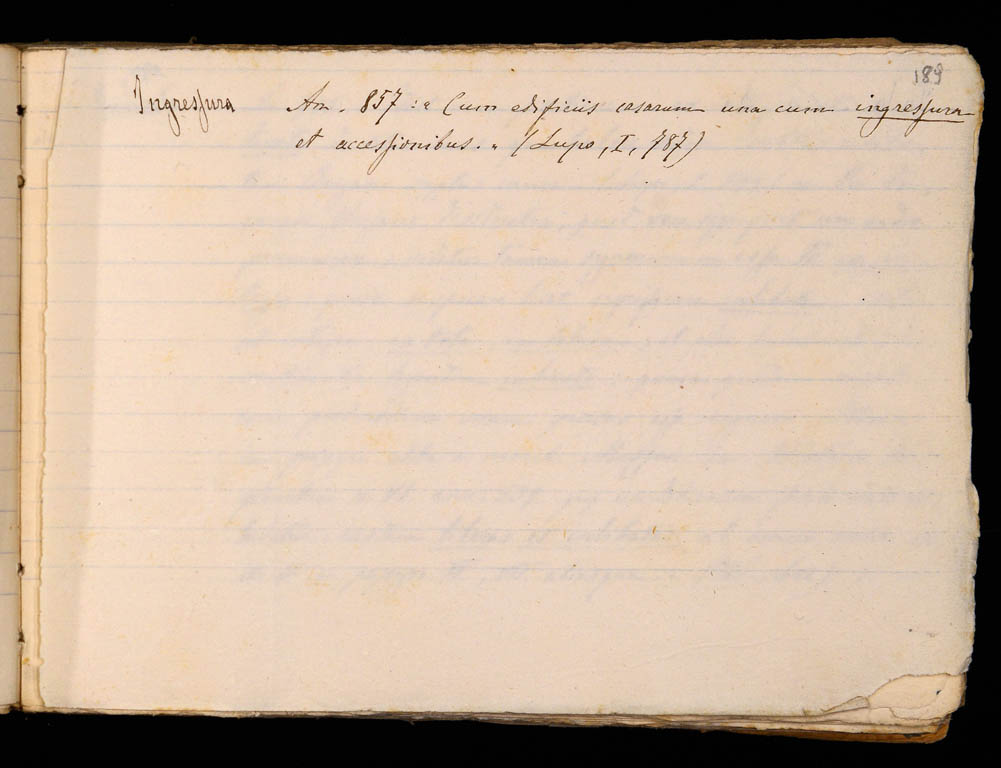 189
Ingressura An. 857: « Cum edificiis casarum una cum ingressura
et accessionibus. » (Lupo, I, 787)